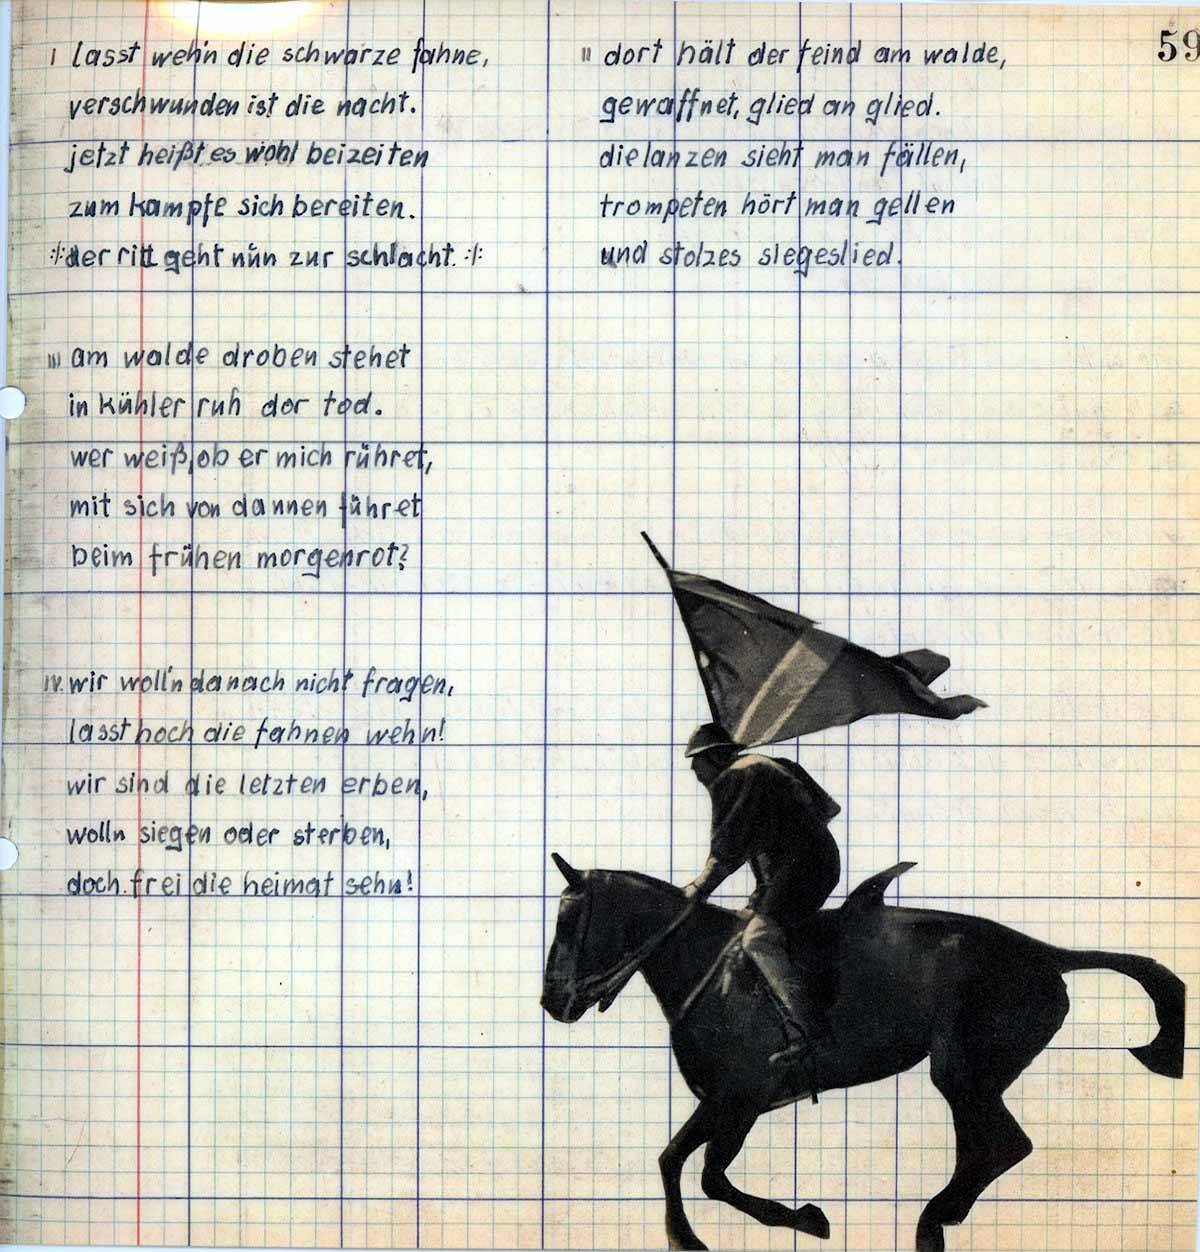 59
I lasst weh'n die schwarze fahne,
verschwunden ist die nacht.
jetzt heißt es wohl beizeiten
zum kampfe sich bereiten.
:/: der ritt geht nŭn zur schlacht. :/:
II dort hält der feind am walde,
gewaffnet, glied an glied.
die lanzen sieht man fällen,
trompeten hört man gellen
und stolzes siegeslied.
III am walde droben stehet
in kühler ruh der tod.
wer weiß, ob er mich rühret,
mit sich von dannen führet
beim frühen morgenrot?
IV. wir woll'n danach nicht fragen,
lasst hoch die fahnen wehn!
wir sind die letzten erben,
wolln siegen oder sterben,
doch frei die heimat sehn!